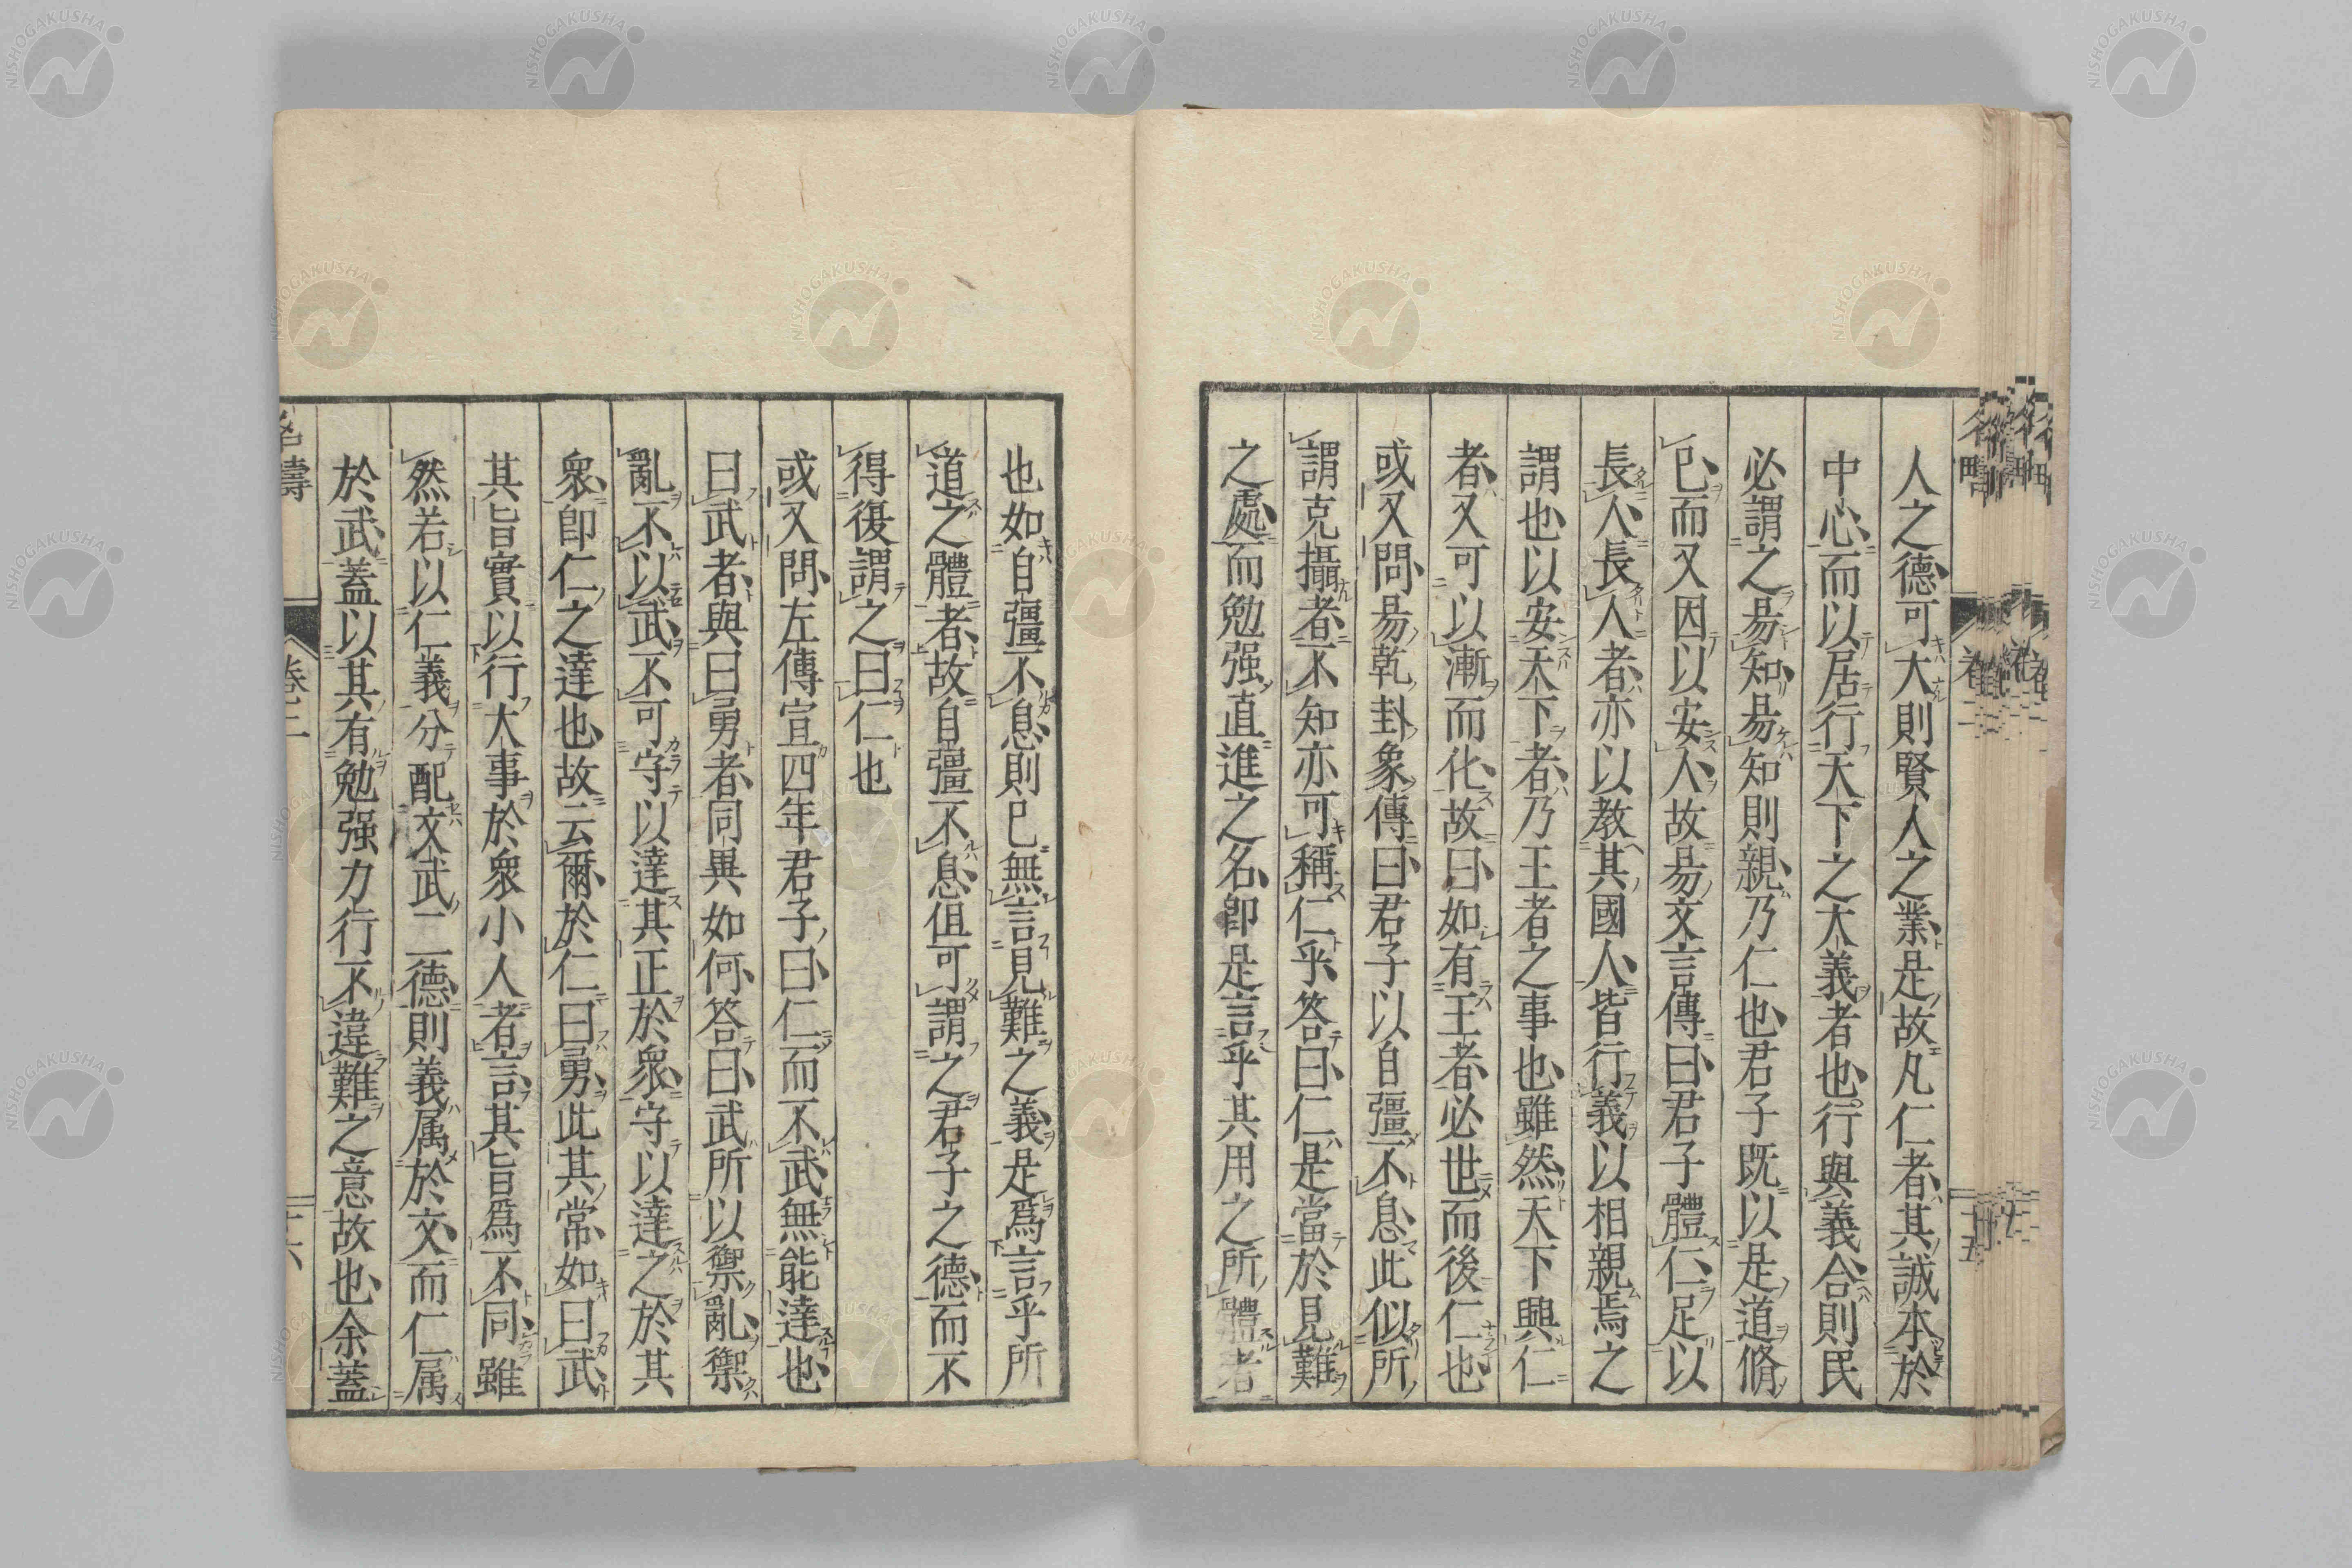 人之德可大則賢人之業是故凡仁者其誠本於
中心而以居行天下之大義者也行與義合則民
必謂之易知易知則親乃仁也君子既以是道脩
已而又因以安人故易文言傳曰君子體仁足以
長人長人者亦以教其國人皆行義以相親焉之
謂也以安天下者乃王者之事也雖然天下興仁
者又可以漸而化故曰如有王者必世而後仁也
或又問易乾卦象傳曰君子以自彊不息此似所
謂克攝者不知亦可稱仁乎答曰仁是當於見難
之處而勉强直進之名卽是言乎其用之所體者
也如自彊不息則已無言見難之義是爲言乎所
道之體者故自彊不息但可謂之君子之德而不
得復謂之曰仁也
或又問左傳宣四年君子曰仁而不武無能達也
曰武者與曰勇者同異如何答曰武所以禦亂禦
亂不以武不可守以達其正於衆守以達之於其
衆卽仁之達也故云爾於仁曰勇此其常如曰武
其旨實以行大事於衆小人者言其旨爲不同雖
然若以仁義分配文武二德則義属於文而仁属
於武蓋以其有勉强力行不違難之意故也余蓋
卷二
十六
NISHOGAKUSHA